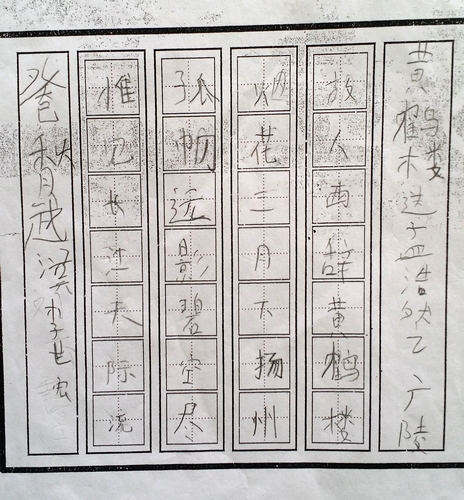 黄鹤楼送孟浩然之广陵
故人西辞黄鹤楼
烟花三月下扬州
孤帆远影碧空尽
惟见长江天际流
秋月